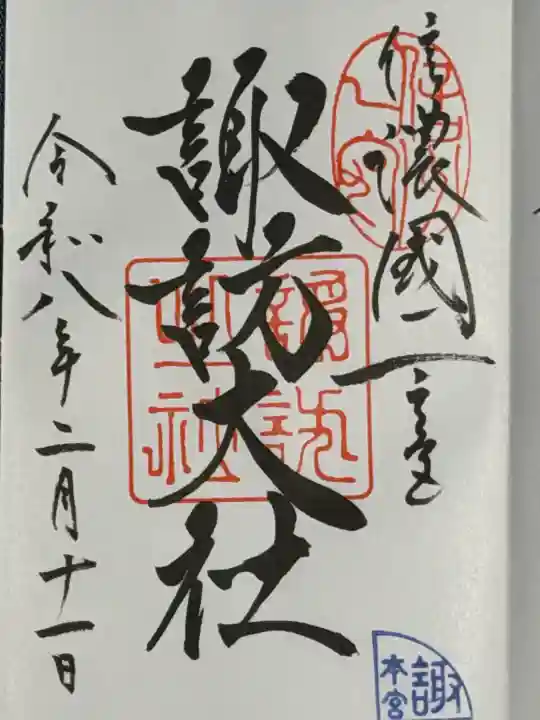 信濃國一之宮
諏訪大社
令和八年二月十一日
諏
本宮